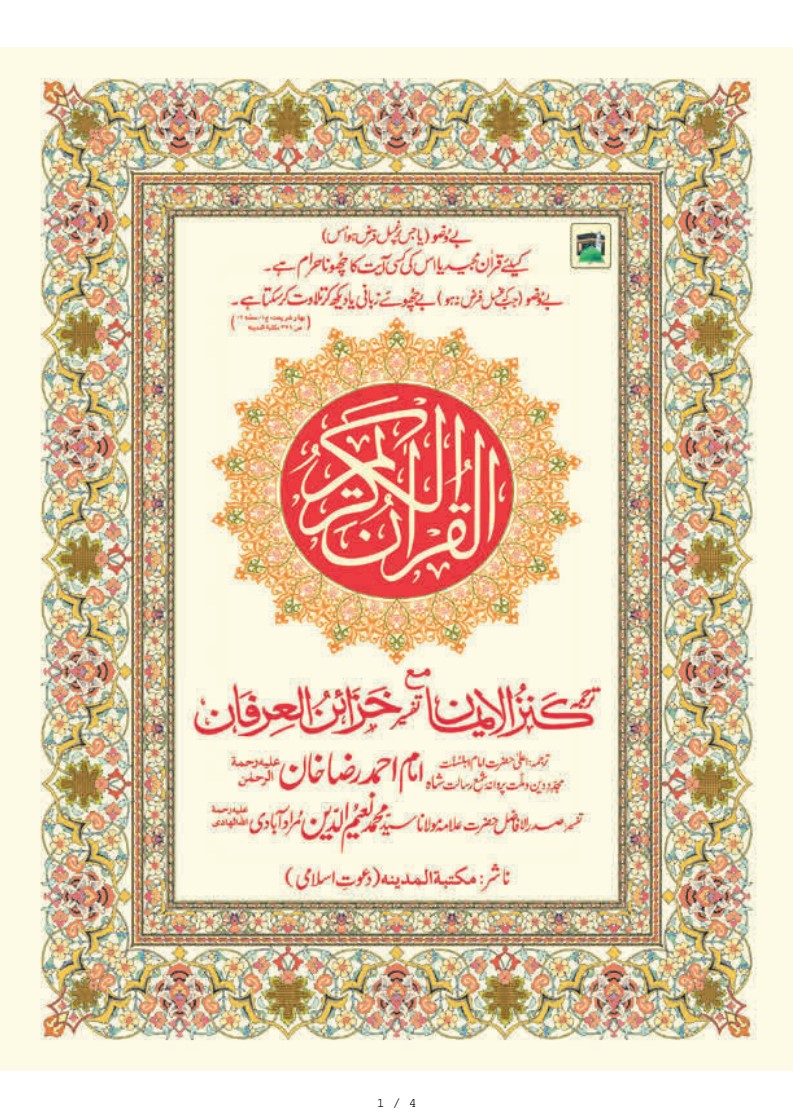 بے وُضو (یا جس پر غسل فرض ہو اُس)
کیلئے قرآنِ مجید یا اس کی کسی آیت کا چھونا حرام ہے۔
بے وُضو (جبکہ غسل فرض نہ ہو) بے چھوئے زبانی یا دیکھ کر تلاوت کر سکتا ہے۔
(بہارِ شریعت، ج۱، حصّہ ۲
مکتبۃ المدینہ)
القرآن الکریم
ترجمہ کنزالایمان مع تفسیر خزائن العرفان
ترجمہ: اعلیٰ حضرت امام اہلسنّت
مجدّدِ دین و ملّت پروانۂ شمعِ رسالت شاہ امام احمد رضا خان علیہ رحمۃ الرحمٰن
تفسیر: صدر الافاضل حضرت علامہ مولانا سیّد محمد نعیم الدین مُراد آبادی علیہ رحمۃ اللہ الھادی
ناشر: مکتبۃ المدینہ (دعوتِ اسلامی)
1 / 4